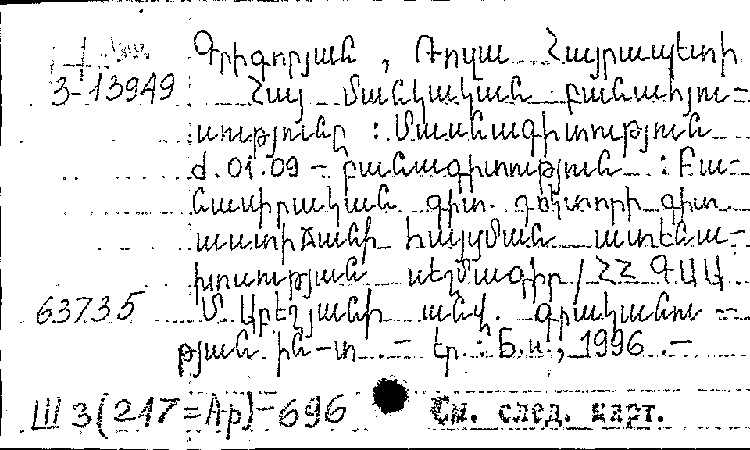 Գրիգորյան, Ռոզա Հայրապետի
3-13949 Հայ մանկական բանահյու-
սությունը : Մասնագիտություն
ժ.01.09 – բանագիտություն : Բա-
նասիրական գիտ. դոկտորի գիտ.
աստիճանի հայցման ատենա-
խոսության սեղմագիր / ՀՀ ԳԱԱ
63735 Մ. Աբեղյանի անվ. գրականու-
թյան ին-տ. – Եր. : Б.и., 1996. –
Ш3(247=Ар)-696 См. след. карт.